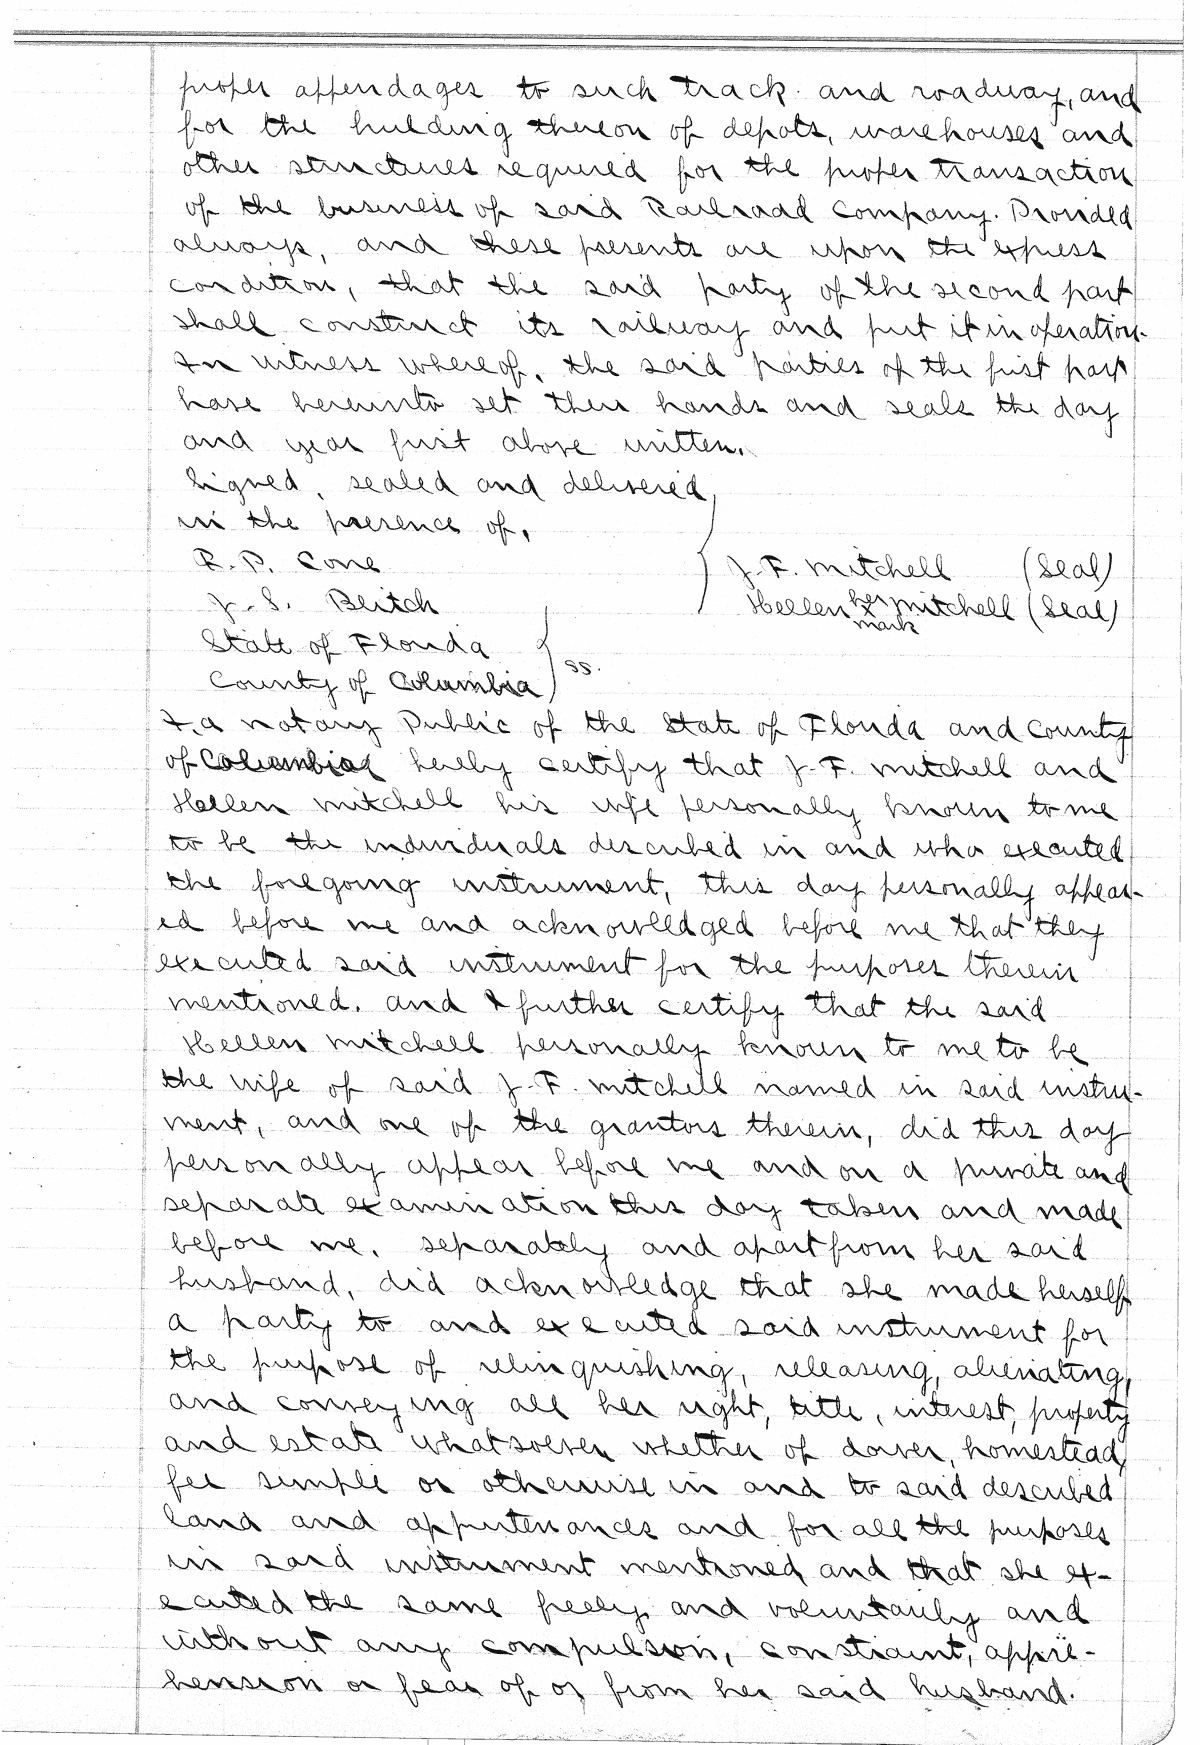 proper appendages to such track and roadway, and
for the building thereon of depots, warehouses and
other structures required for the proper transaction
of the business of said Railroad Company. Provided
always, and these presents are upon the express
condition, that the said party of the second part
shall construct its railway and put it in operation.
In witness whereof, the said parties of the first part
have hereunto set their hands and seals the day
and year first above written.
Signed, sealed and delivered
in the presence of,
R. P. Cone
J. F. Mitchell (Seal)
J. S. Blitch
Hellen her x mark Mitchell (Seal)
State of Florida
County of Columbia ss.
I, a Notary Public of the State of Florida and County
of Columbia hereby certify that J. F. Mitchell and
Hellen Mitchell his wife personally known to me
to be the individuals described in and who executed
the foregoing instrument, this day personally appear-
ed before me and acknowledged before me that they
executed said instrument for the purposes therein
mentioned. and I further certify that the said
Hellen Mitchell personally known to me to be
the wife of said J. F. Mitchell named in said instru-
ment, and one of the grantors therein, did this day
personally appear before me and on a private and
separate examination this day taken and made
before me, separately and apart from her said
husband, did acknowledge that she made herself
a party to and executed said instrument for
the purpose of relinquishing, releasing, alienating,
and conveying all her right, title, interest, property
and estate whatsoever whether of dower, homestead,
fee simple or otherwise in and to said described
land and appurtenances and for all the purposes
in said instrument mentioned and that she ex-
ecuted the same freely and voluntarily and
without any compulsion, constraint, appre-
hension or fear of or from her said husband.